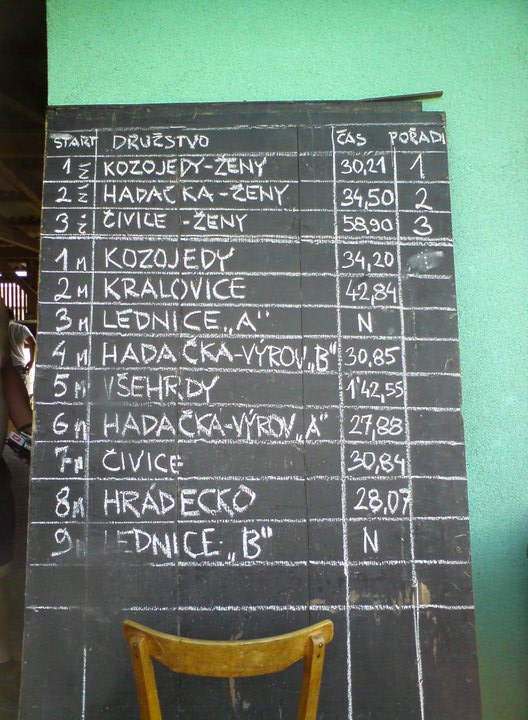 START DRUŽSTVO ČAS POŘADÍ
1 Ž KOZOJEDY-ŽENY 30,21 1
2 Ž HADAČKA-ŽENY 34,50 2
3 Ž ČIVICE -ŽENY 58,90 3
1 M KOZOJEDY 34,20
2 M KRALOVICE 42,84
3 M LEDNICE „A" N
4 M HADAČKA-VÝROV „B" 30,85
5 M VŠEHRDY 1'42,55
6 M HADAČKA-VÝROV „A" 27,88
7 M ČIVICE 30,84
8 M HRÁDECKO 28,07
9 M LEDNICE „B" N